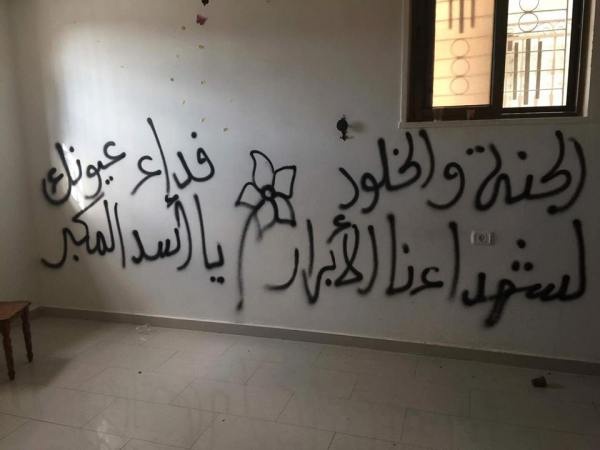 الجنة والخلود
لشهداءنا الأبرار
فداء عيونك
يا أسد المكبر